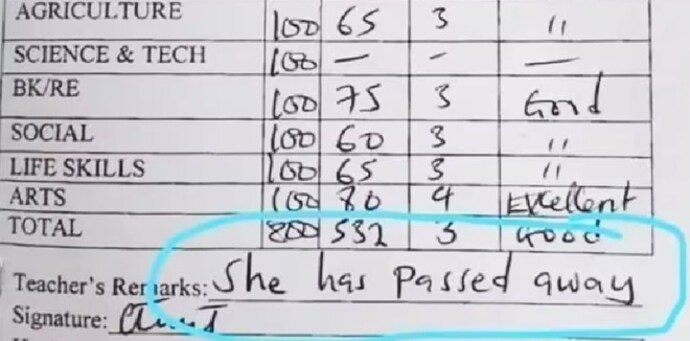 AGRICULTURE 100 65 3 "
SCIENCE & TECH 100 — - —
BK/RE 100 75 3 Good
SOCIAL 100 60 3 "
LIFE SKILLS 100 65 3 "
ARTS 100 80 4 Excellent
TOTAL 800 532 3 Good
Teacher's Remarks: She has passed away
Signature: